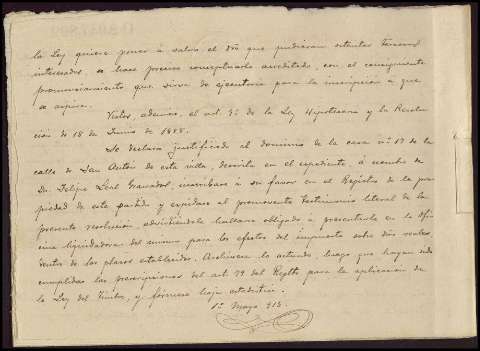 la Ley quiere poner á salvo, el dro que pudieran ostentar terceros
interesados, se hace preciso conceptuarlo acreditado, con el consiguiente
pronunciamiento que sirva de ejecutoria para la inscripción á que
se aspira.
Vistos, además, el art. 3º de la Ley Hipotecaria y la Resolu-
ción de 18 de Junio de 1898.
Se declara justificado el dominio de la casa nº 17 de la
calle de San Antón de esta villa, descrita en el expediente, á nombre de
Dn. Felipe Leal Granador, inscríbase á su favor en el Registro de la pro
piedad de este partido y expídase al promovente testimonio literal de la
presente resolución, advirtiéndole hallarse obligado á presentarlo en la Ofi
cina liquidadora del mismo para los efectos del impuesto sobre dros reales
dentro de los plazos establecidos. Archívese lo actuado, luego que hayan sido
cumplidas las prescripciones del art. 79 del Regltº para la aplicación de
la Ley del Timbre, y fórmese hoja estadística.
1º Mayo 915.